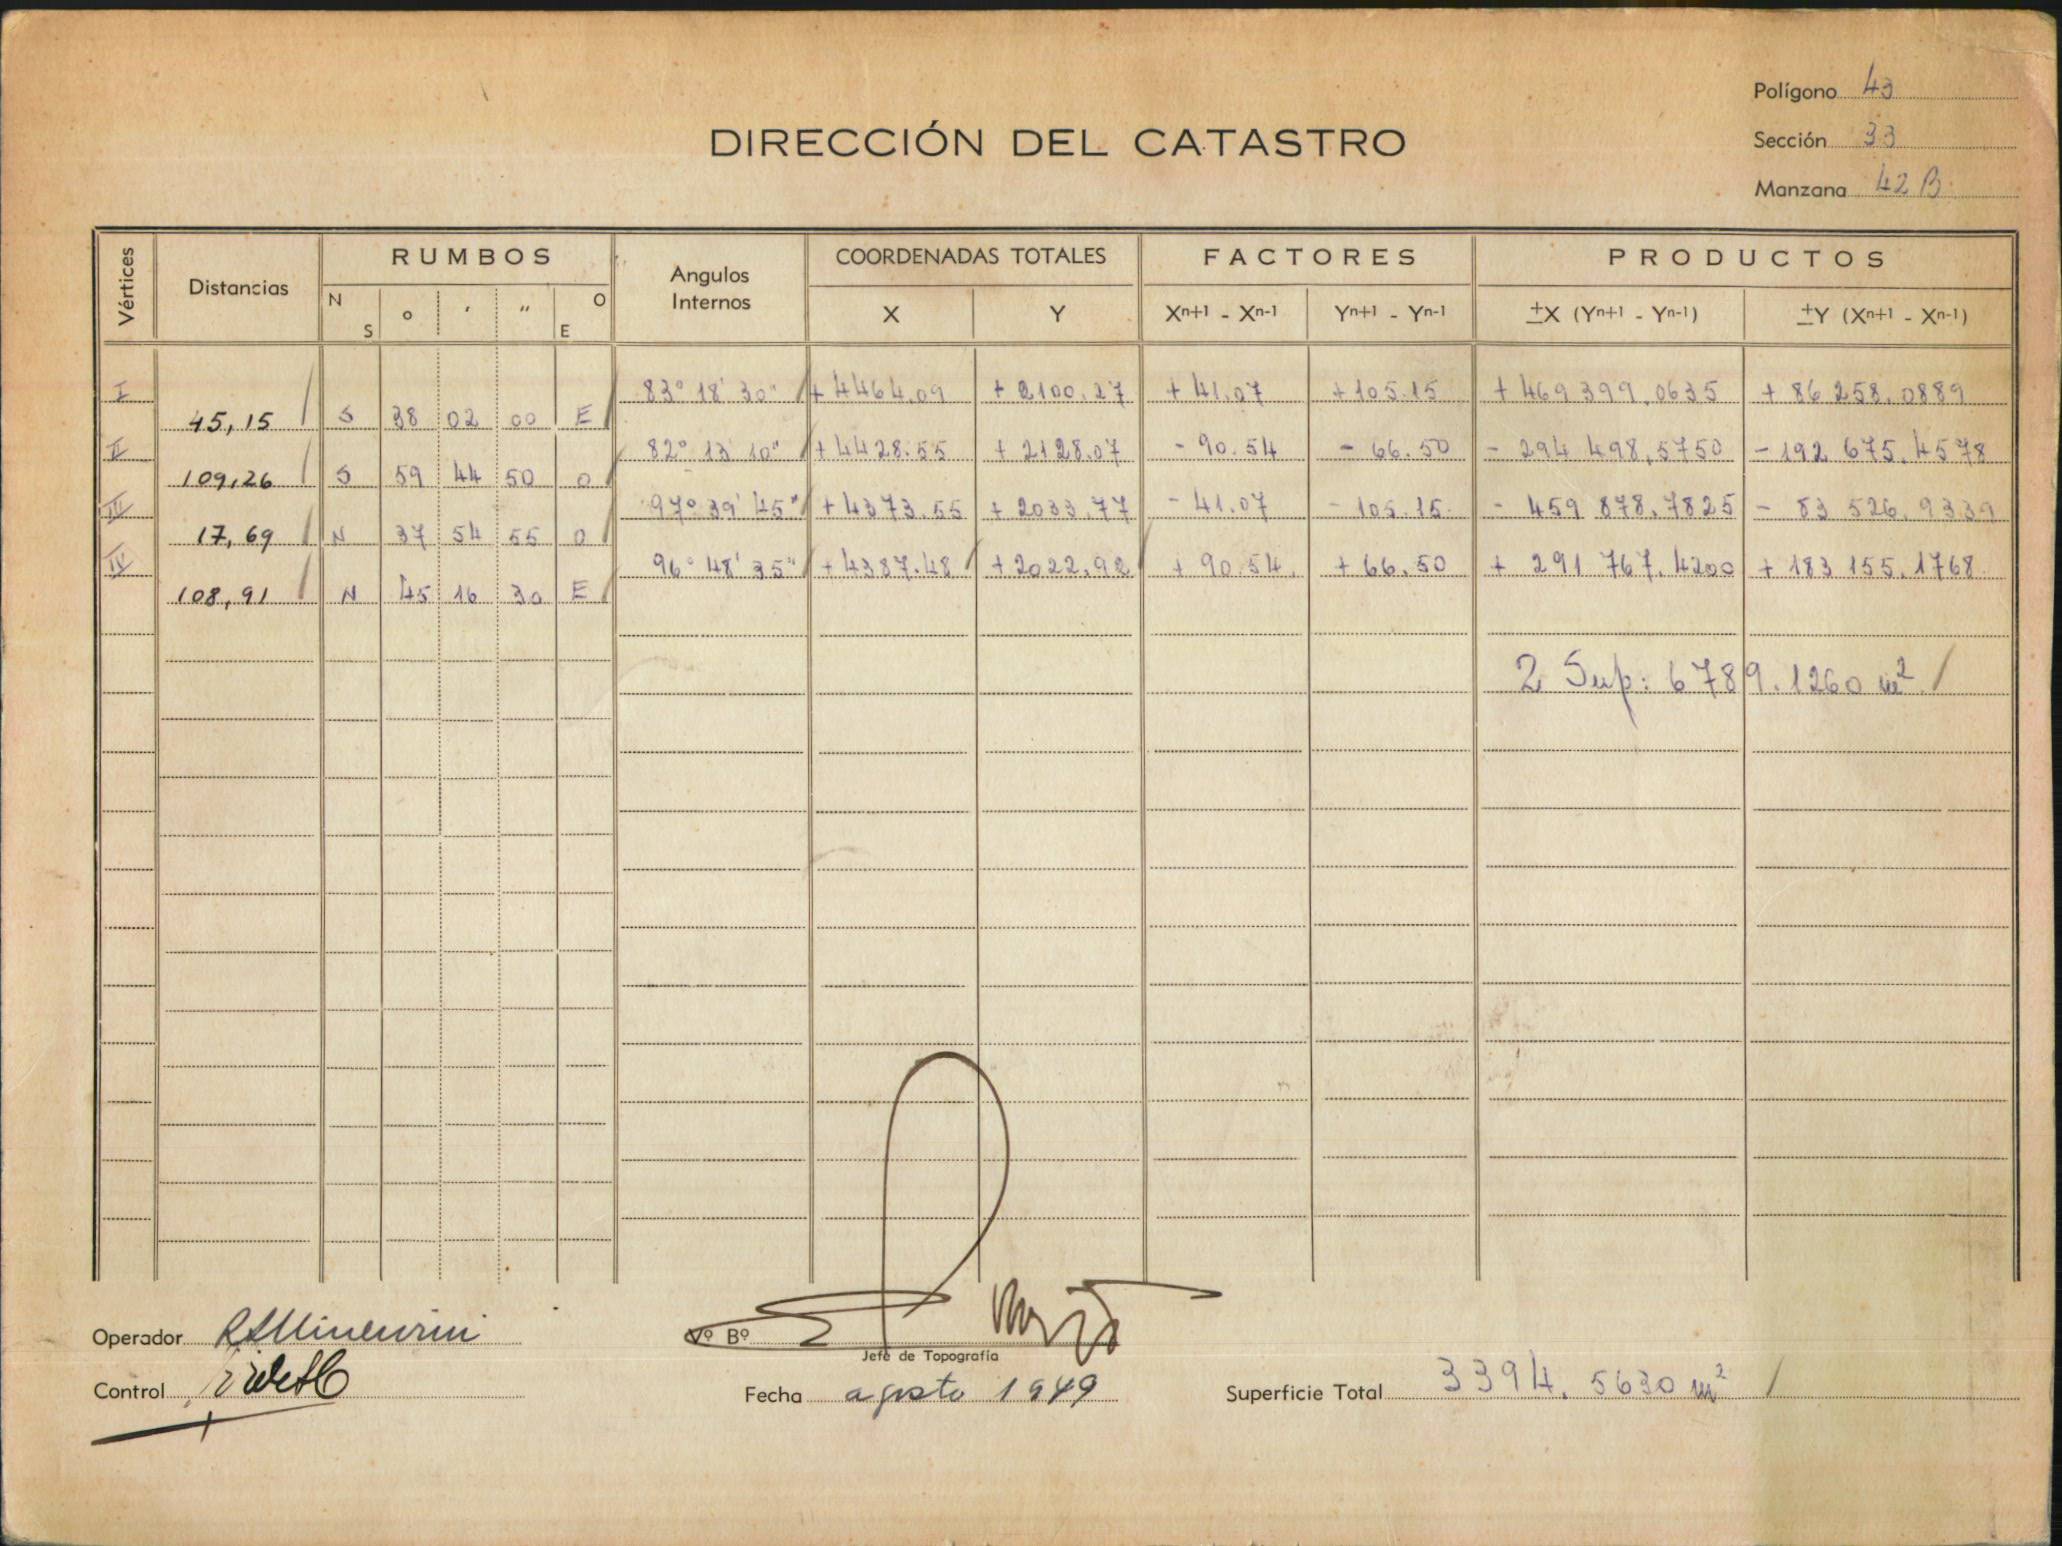 Polígono 43
DIRECCIÓN DEL CATASTRO
Sección 33
Manzana 42 B
Vértices Distancias RUMBOS Angulos Internos COORDENADAS TOTALES FACTORES PRODUCTOS
N S ° ' " O E X Y Xn+1 - Xn-1 Yn+1 - Yn-1 ±X (Yn+1 - Yn-1) ±Y (Xn+1 - Xn-1)
I 83° 18' 30" + 4464.09 + 2100.27 + 41.07 + 105.15 + 469 399.0635 + 86 258.0889
45,15 S 38 02 00 E
II 82° 13' 10" + 4428.55 + 2128.07 - 90.54 - 66.50 - 294 498,5750 - 192 675.4578
109,26 S 59 44 50 O
III 97° 39' 45" + 4373.55 + 2033.77 - 41.07 - 105.15 - 459 878.7825 - 83 526.9339
17,69 N 37 54 55 O
IV 96° 48' 35" + 4387.48 + 2022.92 + 90.54 + 66.50 + 291 767.4200 + 183 155.1768
108,91 N 45 16 30 E
2 Sup: 6789.1260 m²
Operador
Vº Bº
Jefe de Topografía
Control
Fecha agosto 1949
Superficie Total 3394.5630 m²